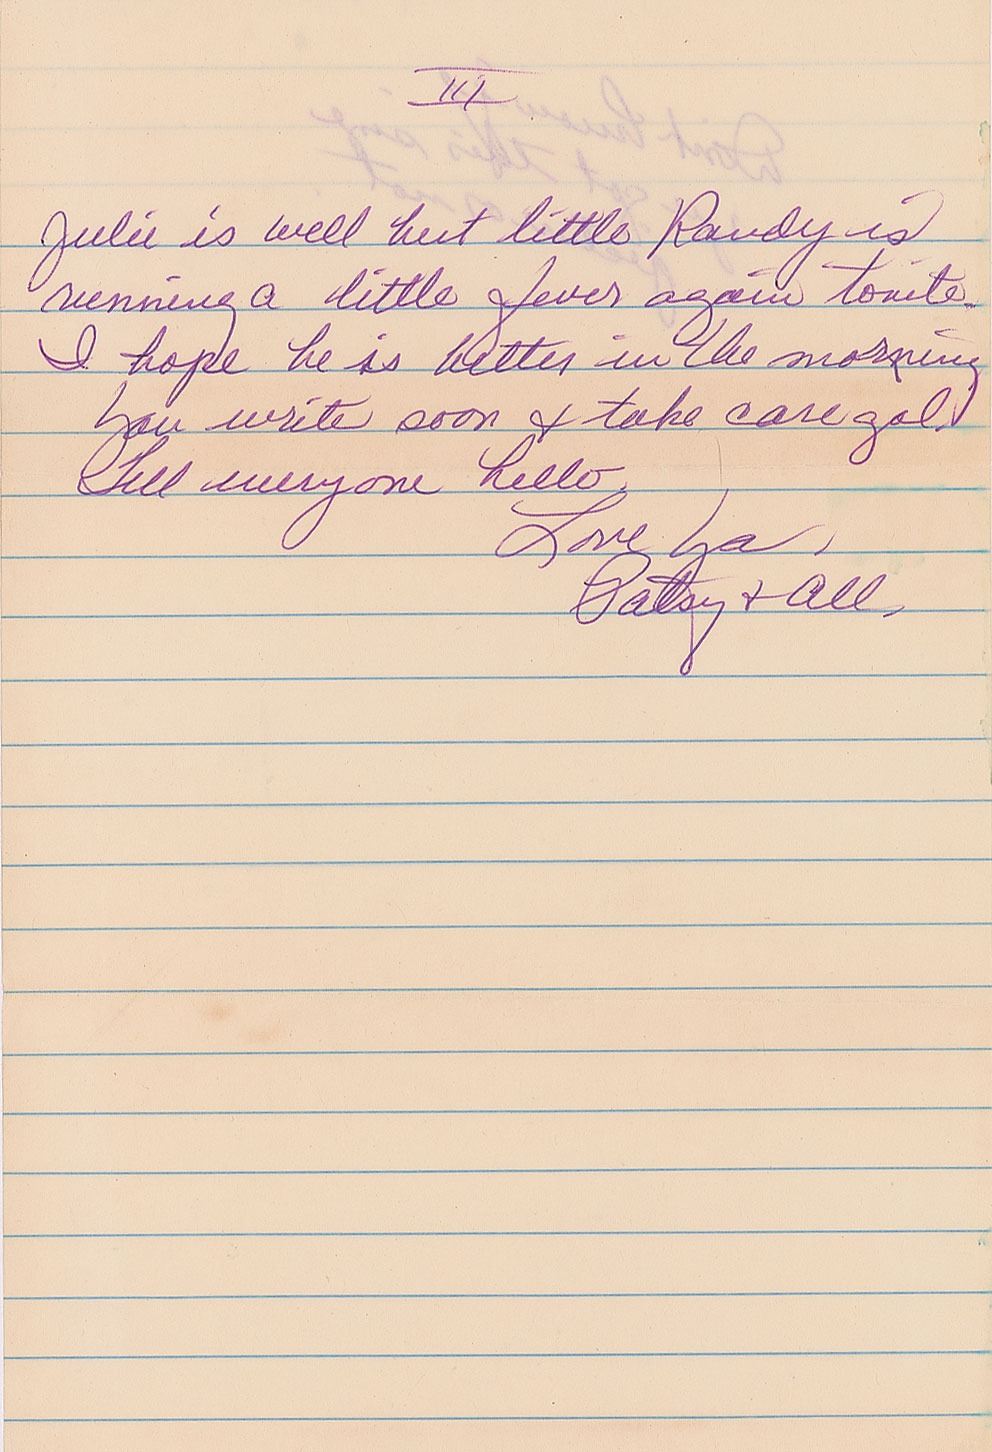 III
Julie is well but little Randy is
running a little fever again tonite.
I hope he is better in the morning
You write soon & take care gal.
Tell everyone hello.
Love Ya,
Patsy & All,